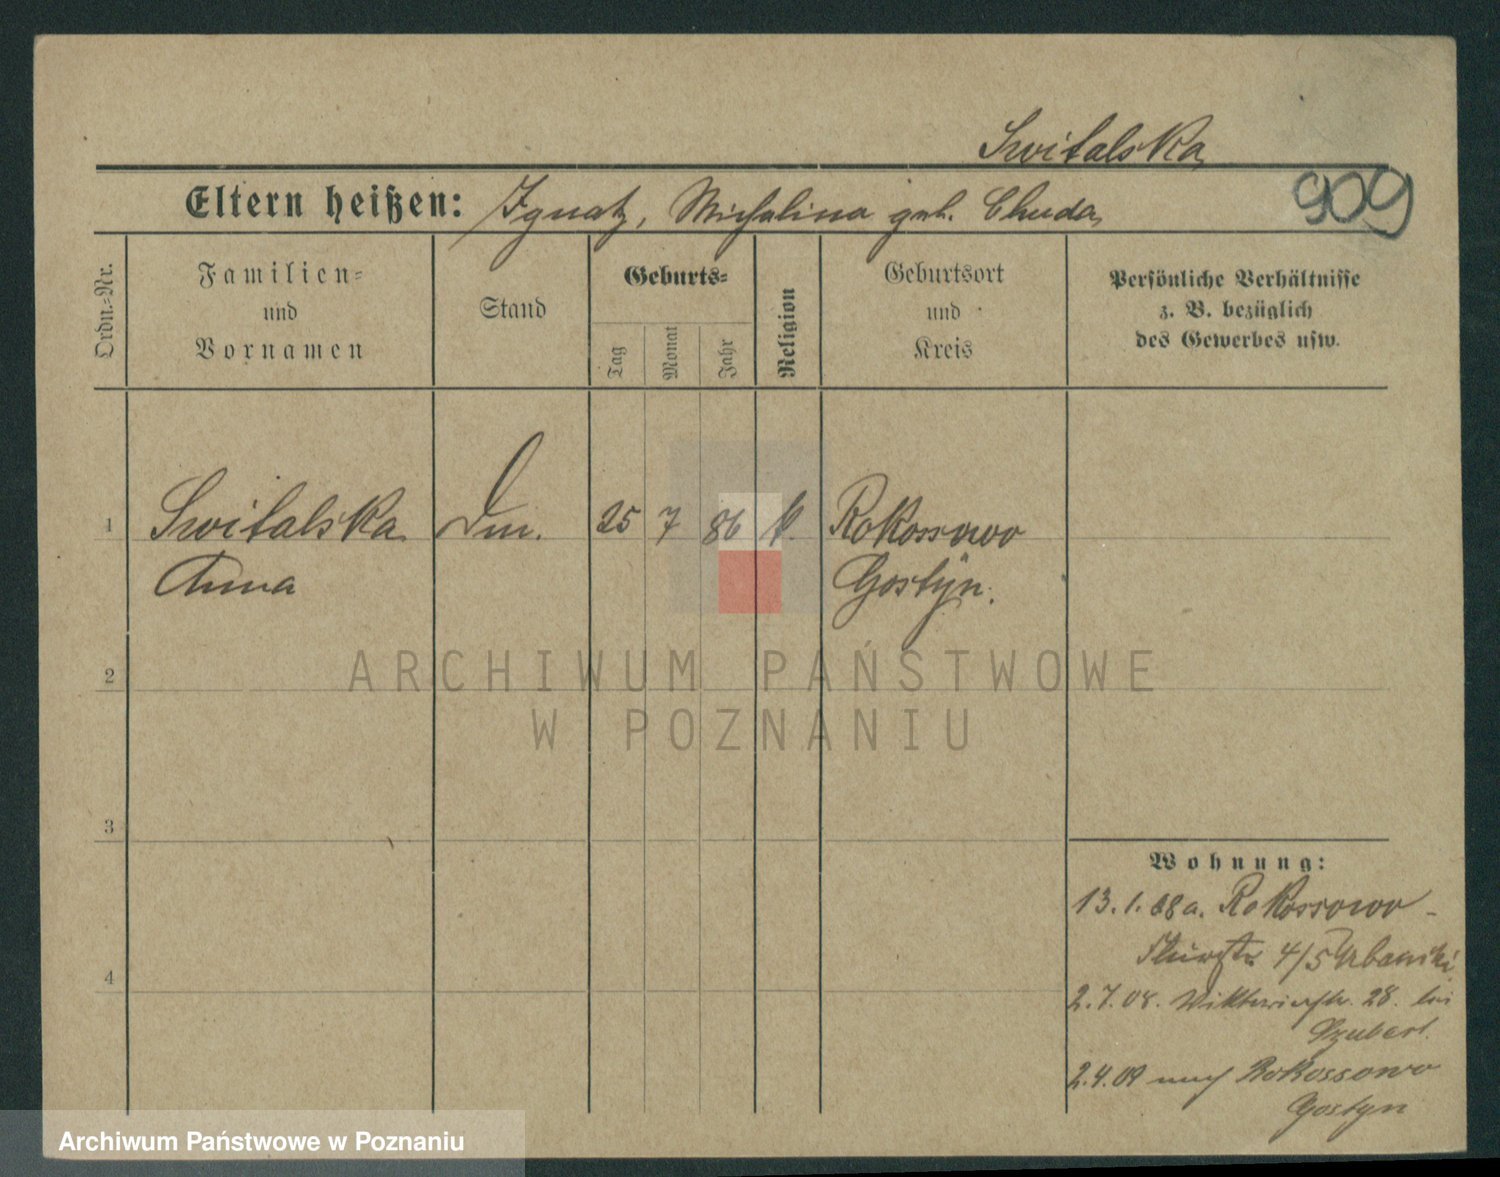 Switalska
Eltern heißen: Ignatz, Michalina geb. Chuda
909
Ordn.-Nr.
Familien-
und
Vornamen
Stand
Geburts-
Tag
Monat
Jahr
Religion
Geburtsort
und
Kreis
Persönliche Verhältnisse
z. B. bezüglich
des Gewerbes usw.
1 Switalska 25 7 86 k. Rokossowo
Anna Gostyn.
2
3
4
ARCHIWUM PAŃSTWOWE
W POZNANIU
Wohnung:
13.1.08 a. Rokossowo
4/5 Urbanski
2.7.08. Viktoriastr. 28. bei
Szubert.
2.4.09 nach Rokossowo
Gostyn
Archiwum Państwowe w Poznaniu